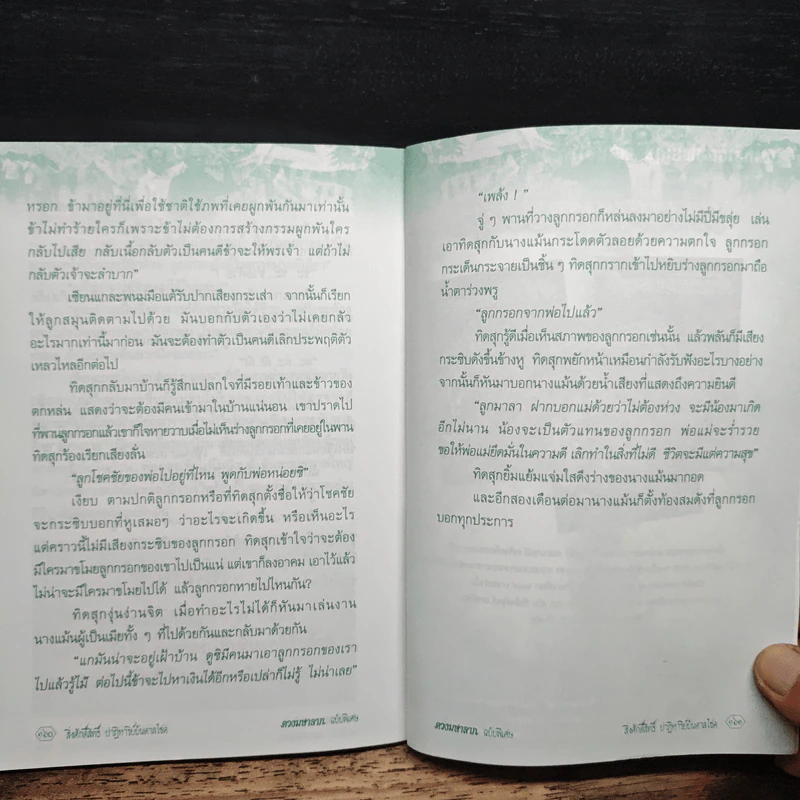 หรอก ข้ามาอยู่ที่นี่เพื่อใช้ชาติใช้ภพที่เคยผูกพันกันมาเท่านั้น
ข้าไม่ทำร้ายใครก็เพราะข้าไม่ต้องการสร้างกรรมผูกพันใคร
กลับไปเสีย กลับเนื้อกลับตัวเป็นคนดีข้าจะให้พรเจ้า แต่ถ้าไม่
กลับตัวเจ้าจะลำบาก”
เซียนแกละพนมมือแต้รับปากเสียงกระเส่า จากนั้นก็เรียก
ให้ลูกสมุนติดตามไปด้วย มันบอกกับตัวเองว่าไม่เคยกลัว
อะไรมากเท่านี้มาก่อน มันจะต้องทำตัวเป็นคนดีเลิกประพฤติตัว
เหลวไหลอีกต่อไป
ทิดสุกกลับมาบ้านก็รู้สึกแปลกใจที่มีรอยเท้าและข้าวของ
ตกหล่น แสดงว่าจะต้องมีคนเข้ามาในบ้านแน่นอน เขาปราดไป
ที่พานลูกกรอกแล้วเขาก็ใจหายวาบเมื่อไม่เห็นร่างลูกกรอกที่เคยอยู่ในพาน
ทิดสุกร้องเรียกเสียงลั่น
“ลูกโชคชัยของพ่อไปอยู่ที่ไหน พูดกับพ่อหน่อยซิ”
เงียบ ตามปกติลูกกรอกหรือที่ทิดสุกตั้งชื่อให้ว่าโชคชัย
จะกระซิบบอกที่หูเสมอๆ ว่าอะไรจะเกิดขึ้น หรือเห็นอะไร
แต่คราวนี้ไม่มีเสียงกระซิบของลูกกรอก ทิดสุกเข้าใจว่าจะต้อง
มีใครมาขโมยลูกกรอกของเขาไปเป็นแน่ แต่เขาก็ลงอาคม เอาไว้แล้ว
ไม่น่าจะมีใครมาขโมยไปได้ แล้วลูกกรอกหายไปไหนกัน?
ทิดสุกงุ่นง่านจิต เมื่อทำอะไรไม่ได้ก็หันมาเล่นงาน
นางแม้นผู้เป็นเมียทั้ง ๆ ที่ไปด้วยกันและกลับมาด้วยกัน
“แกมันน่าจะอยู่เฝ้าบ้าน ดูซิมีคนมาเอาลูกกรอกของเรา
ไปแล้วรู้ไม๊ ต่อไปนี้ข้าจะไปหาเงินได้อีกหรือเปล่าก็ไม่รู้ ไม่น่าเลย”
๑๖๐ สิ่งศักดิ์สิทธิ์ ปาฏิหาริย์บันดาลโชค
ดวงมหาลาภ ฉบับพิเศษ
“เพล้ง !”
จู่ ๆ พานที่วางลูกกรอกก็หล่นลงมาอย่างไม่มีปี่มีขลุ่ย เล่น
เอาทิดสุกกับนางแม้นกระโดดตัวลอยด้วยความตกใจ ลูกกรอก
กระเด็นกระจายเป็นชิ้น ๆ ทิดสุกกรากเข้าไปหยิบร่างลูกกรอกมาถือ
น้ำตาร่วงพรู
“ลูกกรอกจากพ่อไปแล้ว”
ทิดสุกรู้ดีเมื่อเห็นสภาพของลูกกรอกเช่นนั้น แล้วพลันก็มีเสียง
กระซิบดังขึ้นข้างหู ทิดสุกพยักหน้าเหมือนกำลังรับฟังอะไรบางอย่าง
จากนั้นก็หันมาบอกนางแม้นด้วยน้ำเสียงที่แสดงถึงความยินดี
“ลูกมาลา ฝากบอกแม่ด้วยว่าไม่ต้องห่วง จะมีน้องมาเกิด
อีกไม่นาน น้องจะเป็นตัวแทนของลูกกรอก พ่อแม่จะร่ำรวย
ขอให้พ่อแม่ยึดมั่นในความดี เลิกทำในสิ่งที่ไม่ดี ชีวิตจะมีแต่ความสุข”
ทิดสุกยิ้มแย้มแจ่มใสดึงร่างของนางแม้นมากอด
และอีกสองเดือนต่อมานางแม้นก็ตั้งท้องสมดังที่ลูกกรอก
บอกทุกประการ
ดวงมหาลาภ ฉบับพิเศษ
สิ่งศักดิ์สิทธิ์ ปาฏิหาริย์บันดาลโชค ๑๖๑